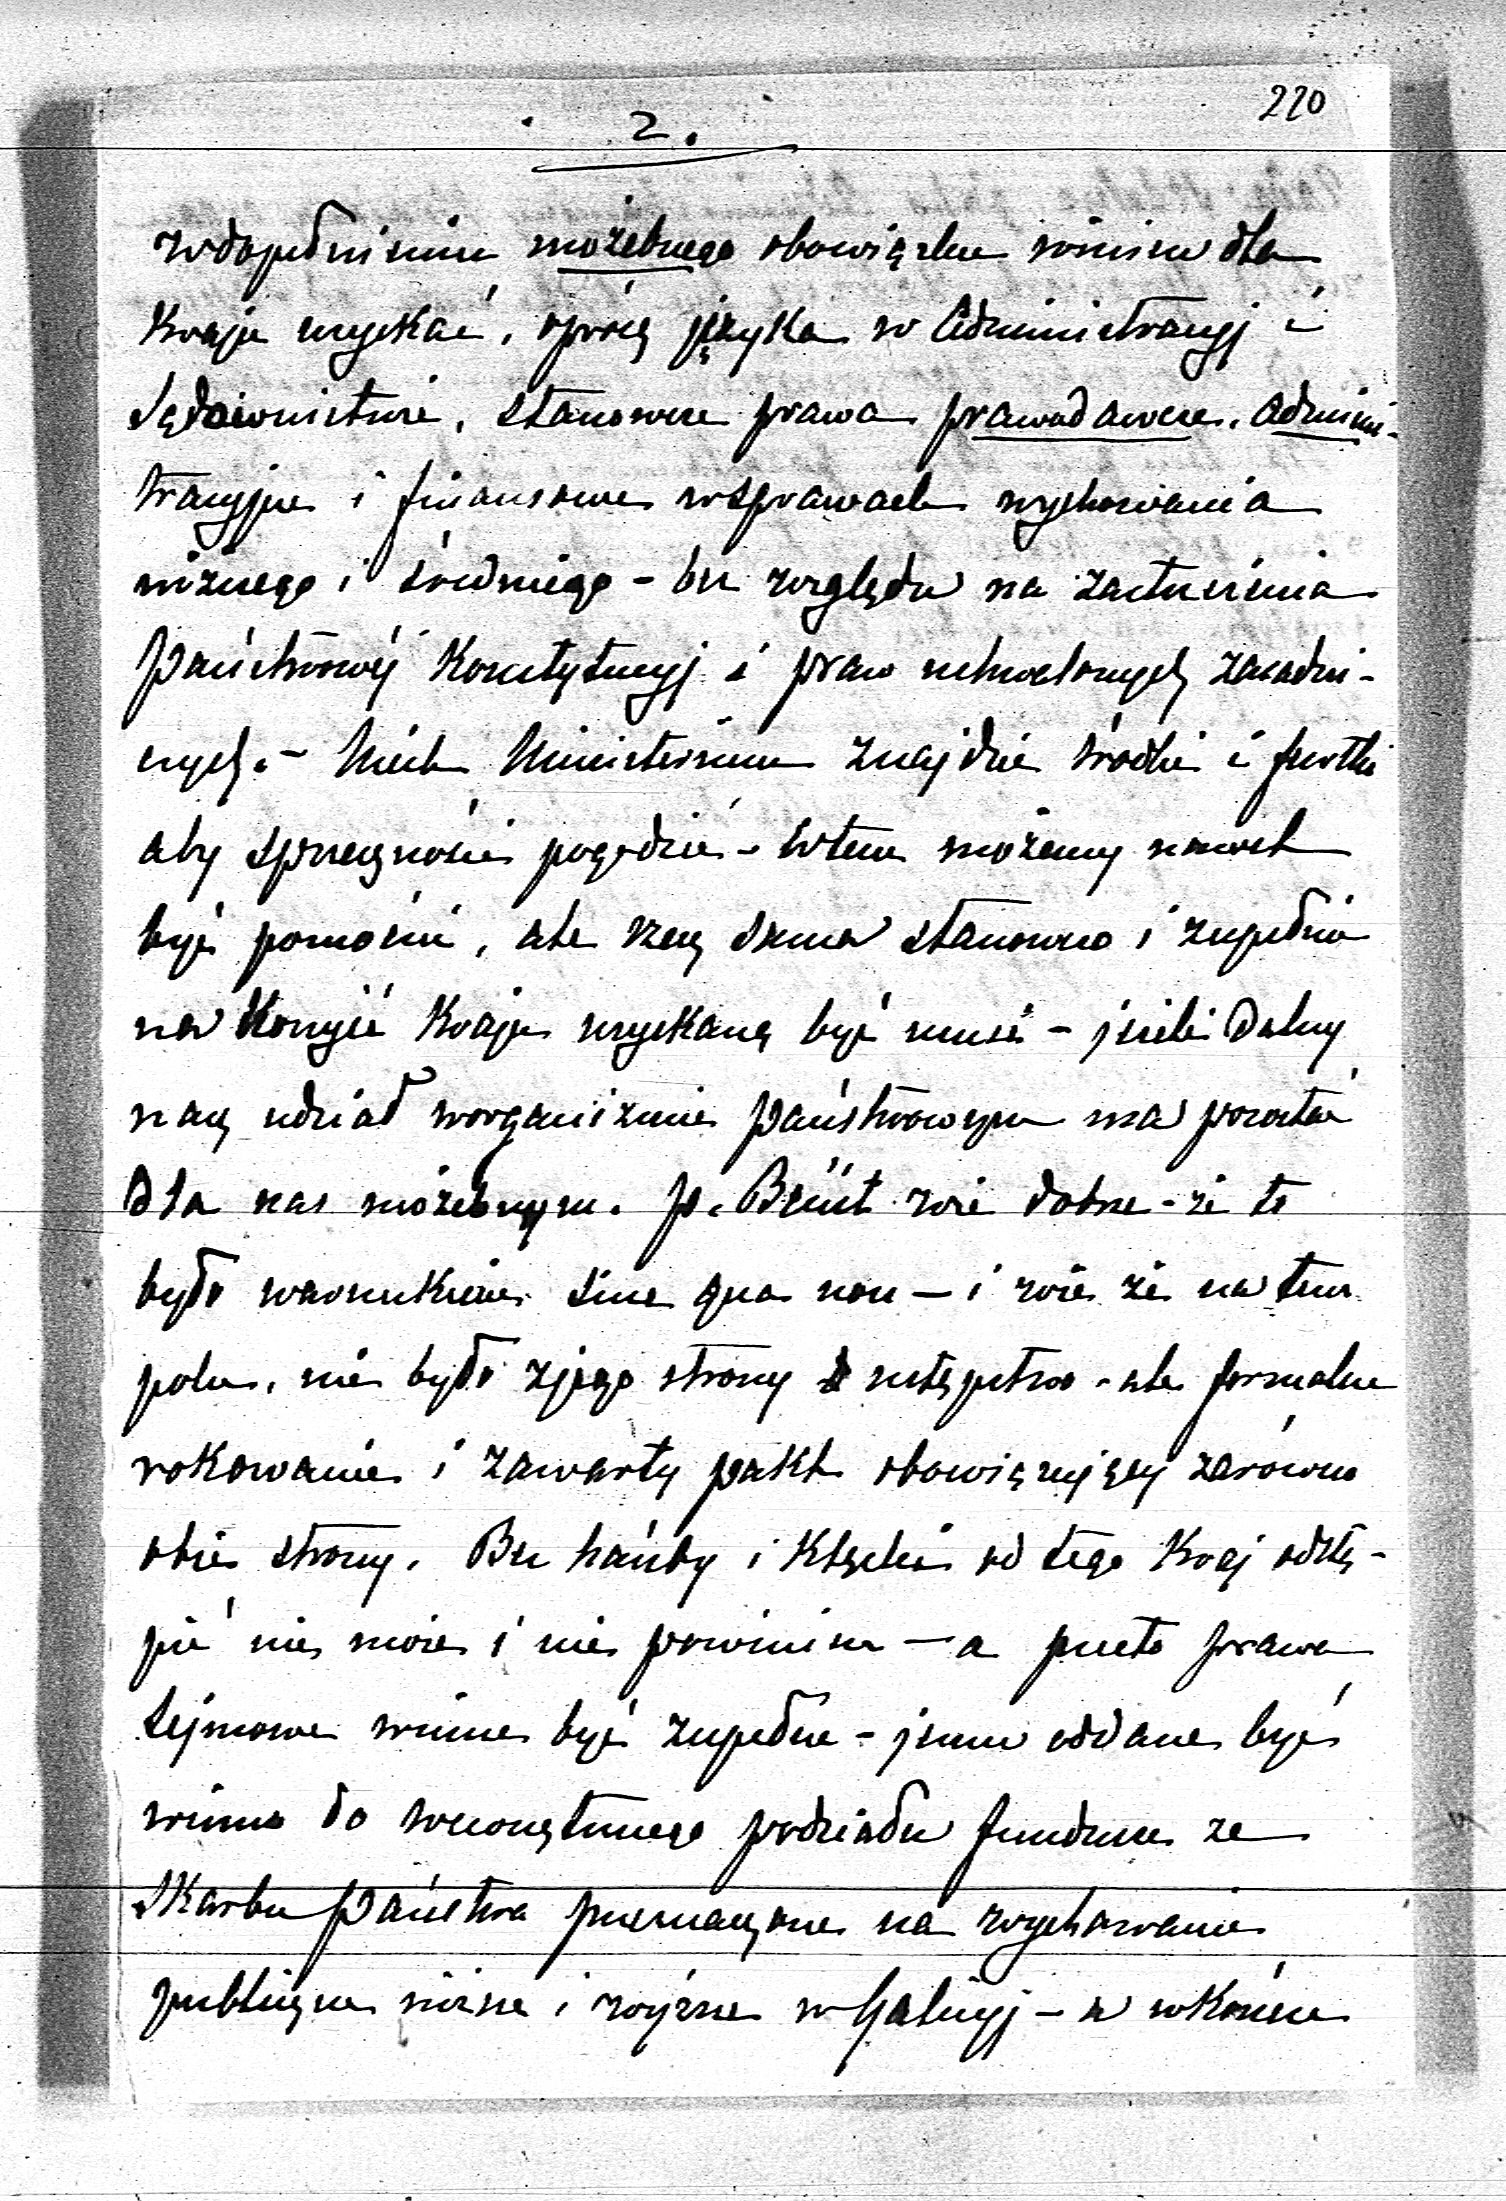 220
2.
w dopełnieniu możebnego obowiązku winien dla
Kraju uzyskać, oprócz języka w Administracyj i
Sądownictwie, stanowcze prawa prawodawcze, admini-
tracyjne i finansowe w sprawach wychowania
niższego i średniego – bez względu na zastrzeżenia
Państwowéj Konstytucyj i praw uchwalonych zasadni-
czych. – Niech Ministerium znajdzie środki i furtki
aby sprzeczności pogodzić – w tem możemy nawet
być pomocni, ale rzecz sama stanowczo i zupełnie
na korzyść Kraju uzyskaną być musi – jeżeli dalszy
nasz udział w organizmie Państwowym ma pozostać
dla nas możebnym. P. Beust wie dobrze – że to
było warunkiem sine qua non – i wie że na tem
polu, nie było z jego strony ustępstwo – ale formalne
rokowanie i zawarty pakt obowiązujący zarówno
obie strony. Bez hańby i klęski od tego Kraj odstą-
pić nie może i nie powinien – a przeto prawa
Sejmowe winne być zupełne – jemu oddane być
winno do wewnętrznego podziału fundusze ze
Skarbu Państwa przeznaczone na wychowanie
publiczne niższe i wyższe w Galicyj – a w końcu